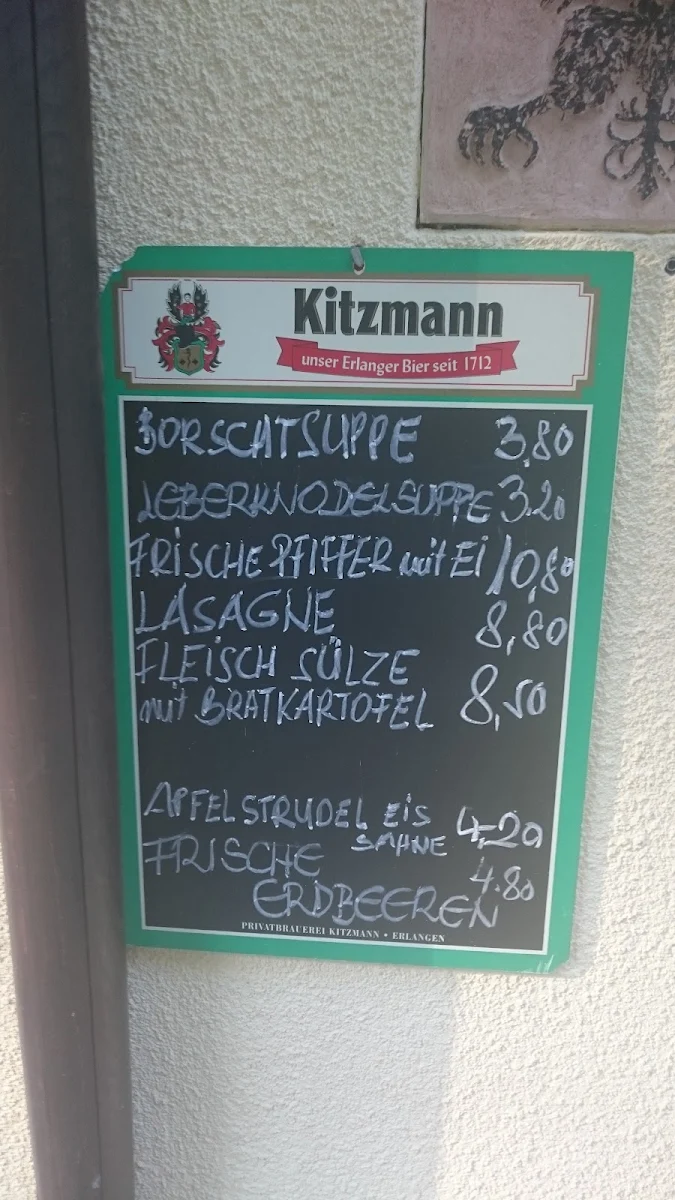 Kitzmann
unser Erlanger Bier seit 1712
BORSCHTSUPPE 3,80
LEBERKNODELSUPPE 3.20
FRISCHE PFIFFER mit Ei 10,80
LASAGNE 8,80
FLEISCH SÜLZE
mit BRATKARTOFEL 8,50
APFELSTRUDEL EiS 4,20
SAHNE
FRISCHE 4.80
ERDBEEREN
PRIVATBRAUEREI KITZMANN • ERLANGEN